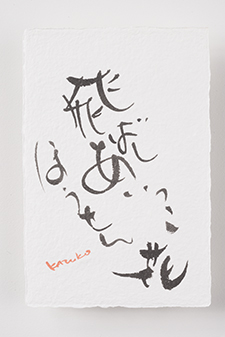 飛ばし
あいっこ
ほうせん花
KAZUKO